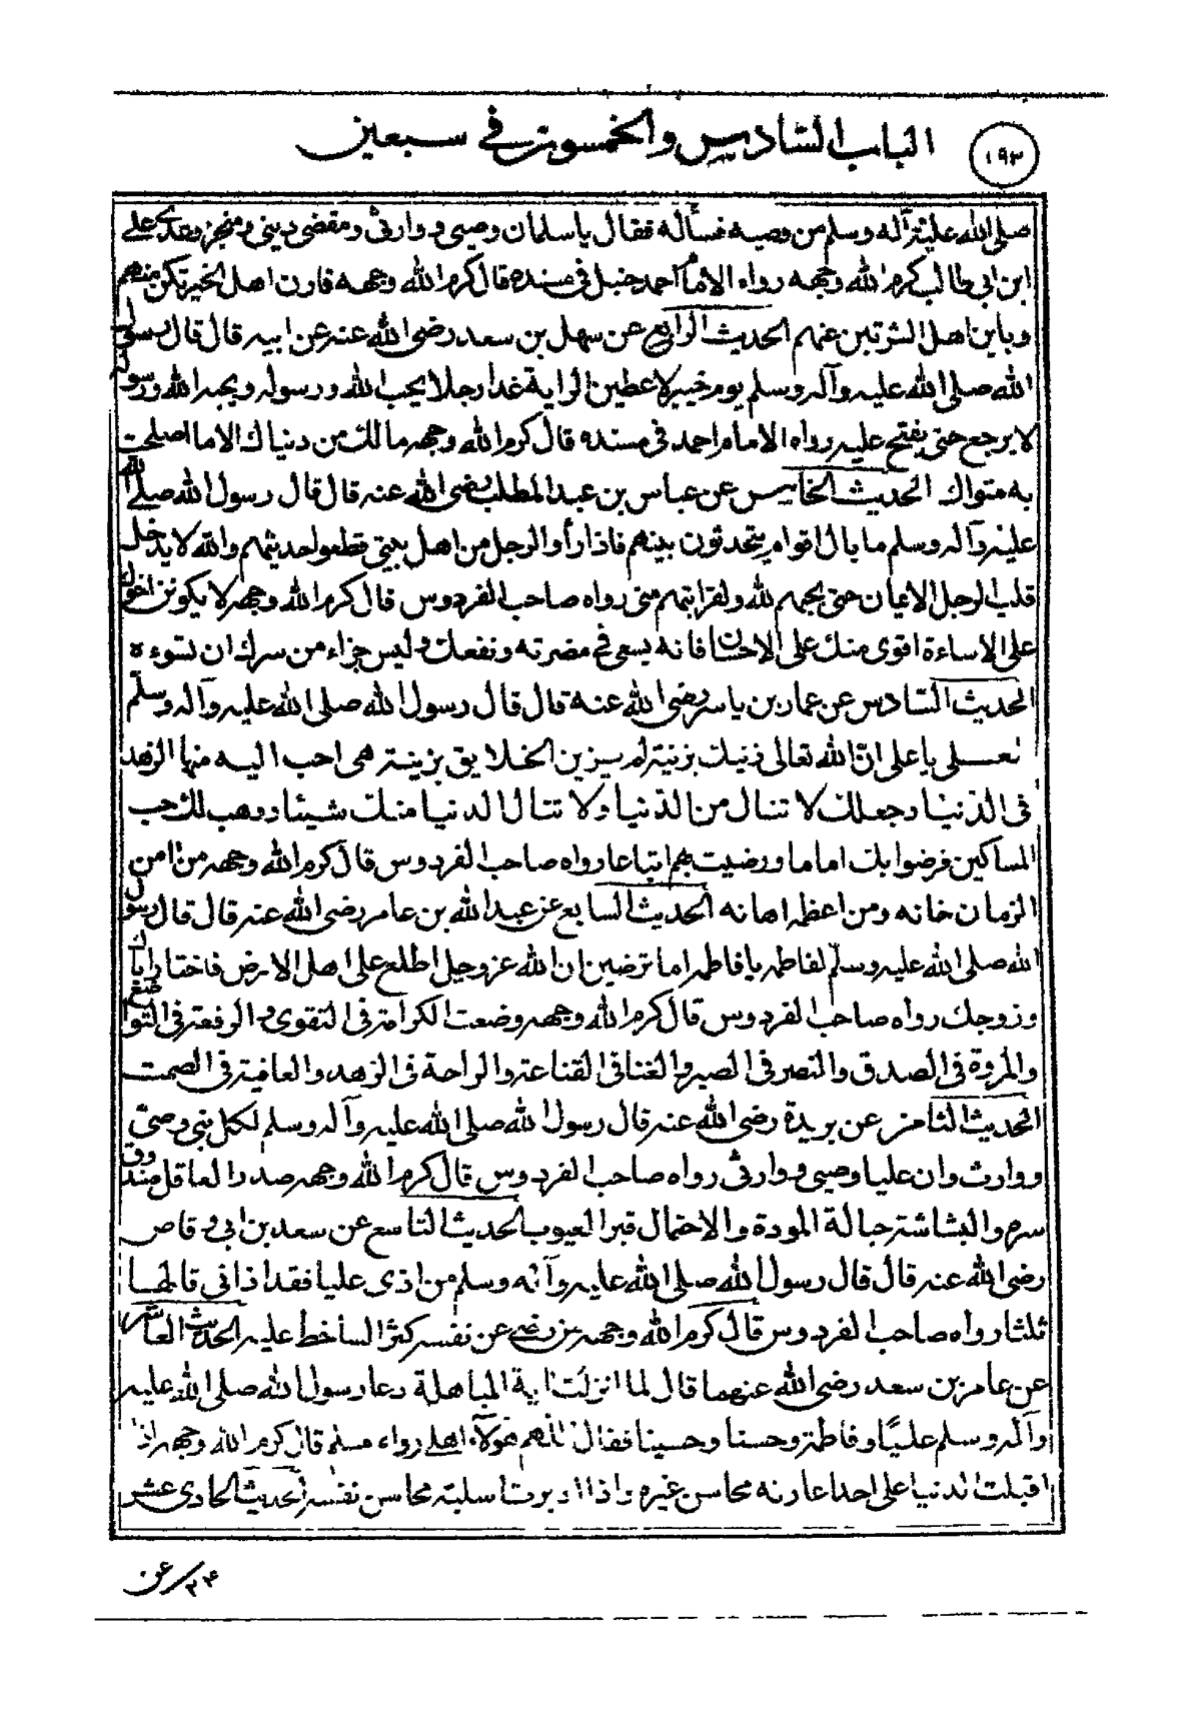 ١٩٣
الباب السادس والخمسون في سبعين
صلى الله عليه وآله وسلم من وصيه فسأله فقال يا سلمان وصيي ووارثي ومقضى ديني ومنجز وعدي علي
ابن ابي طالب كرم الله وجهه رواه الامام احمد حنبل في مسنده قال كرم الله وجهه قارن اهل الخير تكن منهم
وباين اهل الشر تبن عنهم الحديث الرابع عن سهل بن سعد رضي الله عنه عن ابيه قال قال رسول
الله صلى الله عليه وآله وسلم يوم خيبر لاعطين الراية غدا رجلا يحب الله ورسوله ويحبه الله ورسوله
لا يرجع حتى يفتح عليه رواه الامام احمد في مسنده قال كرم الله وجهه مالك من دنياك الا ما اصلحت
به مثواك الحديث الخامس عن عباس بن عبد المطلب رضي الله عنه قال قال رسول الله صلى الله
عليه وآله وسلم ما بال اقوام يتحدثون بينهم فاذا رأوا الرجل من اهل بيتي قطعوا حديثهم والله لا يدخل
قلب الرجل الايمان حتى يحبهم لله ولقرابتهم مني رواه صاحب الفردوس قال كرم الله وجهه لا يكونن اخوك
على الاساءة اقوى منك على الاحسان فانه يسعى في مضرته ونفعك وليس جزاء من سرك ان تسوءه
الحديث السادس عن عمار بن ياسر رضي الله عنه قال قال رسول الله صلى الله عليه وآله وسلم
لعلي يا علي ان الله تعالى زينك بزينة لم يزين الخلايق بزينة هي احب اليه منها الزهد
في الدنيا وجعلك لا تنال من الدنيا ولا تنال الدنيا منك شيئا ووهب لك حب
المساكين فرضوا بك اماما ورضيت بهم اتباعا رواه صاحب الفردوس قال كرم الله وجهه من امن
الزمان خانه ومن اعظمه اهانه الحديث السابع عن عبد الله بن عامر رضي الله عنه قال قال رسول
الله صلى الله عليه وسلم لفاطمه يا فاطمه اما ترضين ان الله عز وجل اطلع على اهل الارض فاختار اباك
وزوجك رواه صاحب الفردوس قال كرم الله وجهه وضعت الكرامة في التقوى والرفعة في التواضع
والمروة في الصدق والنصر في الصبر والغنا في القناعة والراحة في الزهد والعافية في الصمت
الحديث الثامن عن بريدة رضي الله عنه قال رسول الله صلى الله عليه وآله وسلم لكل نبي وصي
ووارث وان عليا وصيي ووارثي رواه صاحب الفردوس قال كرم الله وجهه صدر العاقل صندوق
سره والبشاشة حبالة المودة والاحتمال قبر العيوب الحديث التاسع عن سعد بن ابي وقاص
رضي الله عنه قال قال رسول الله صلى الله عليه وآله وسلم من اذى عليا فقد اذاني قالها
ثلثا رواه صاحب الفردوس قال كرم الله وجهه من رضي عن نفسه كثر الساخط عليه الحديث العاشر
عن عامر بن سعد رضي الله عنهما قال لما انزلت اية المباهلة دعا رسول الله صلى الله عليه
وآله وسلم عليا وفاطمة وحسنا وحسينا فقال اللهم هولاء اهلي رواه مسلم قال كرم الله وجهه اذا
اقبلت الدنيا على احد اعارته محاسن غيره واذا ادبرت سلبته محاسن نفسه الحديث الحادي عشر
٢٤/عن